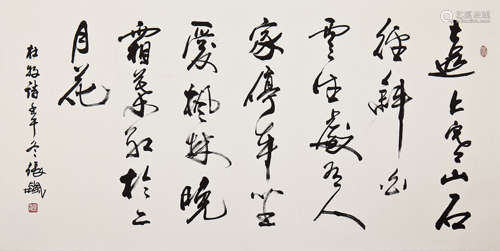 遠上寒山石
徑斜白
雲生處有人
家停車坐
愛楓林晚
霜葉紅於二
月花
杜牧詩 冬